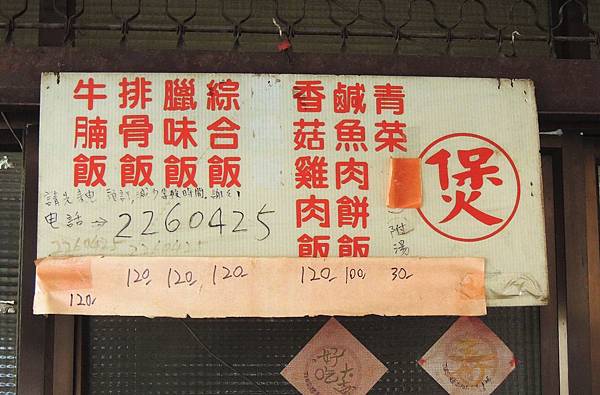 煲
青菜
鹹魚肉餅飯
香菇雞肉飯
綜合飯
臘味飯
排骨飯
牛腩飯
附湯
請先來電 預訂,減少等候時間,謝謝!
电話→2260425
2260425 2260425
120 120 120 120 120 100 30
好吃